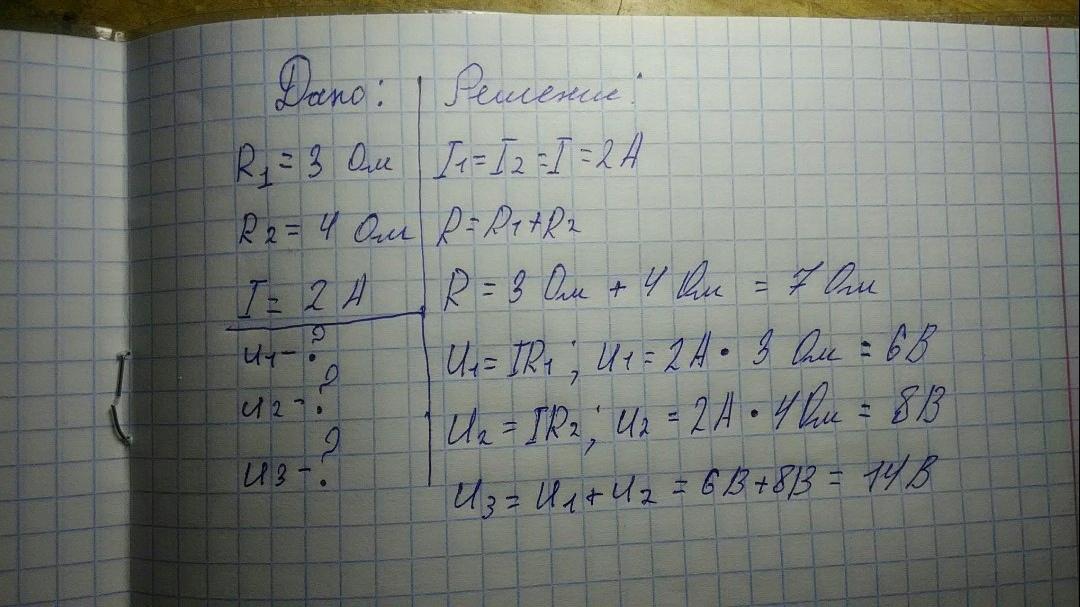 Дано:
R1 = 3 Ом
R2 = 4 Ом
I = 2 А
U1 - ?
U2 - ?
U3 - ?
Решение:
I1 = I2 = I = 2 А
R = R1 + R2
R = 3 Ом + 4 Ом = 7 Ом
U1 = IR1 ; U1 = 2А · 3 Ом = 6В
U2 = IR2 ; U2 = 2А · 4 Ом = 8В
U3 = U1 + U2 = 6В + 8В = 14В